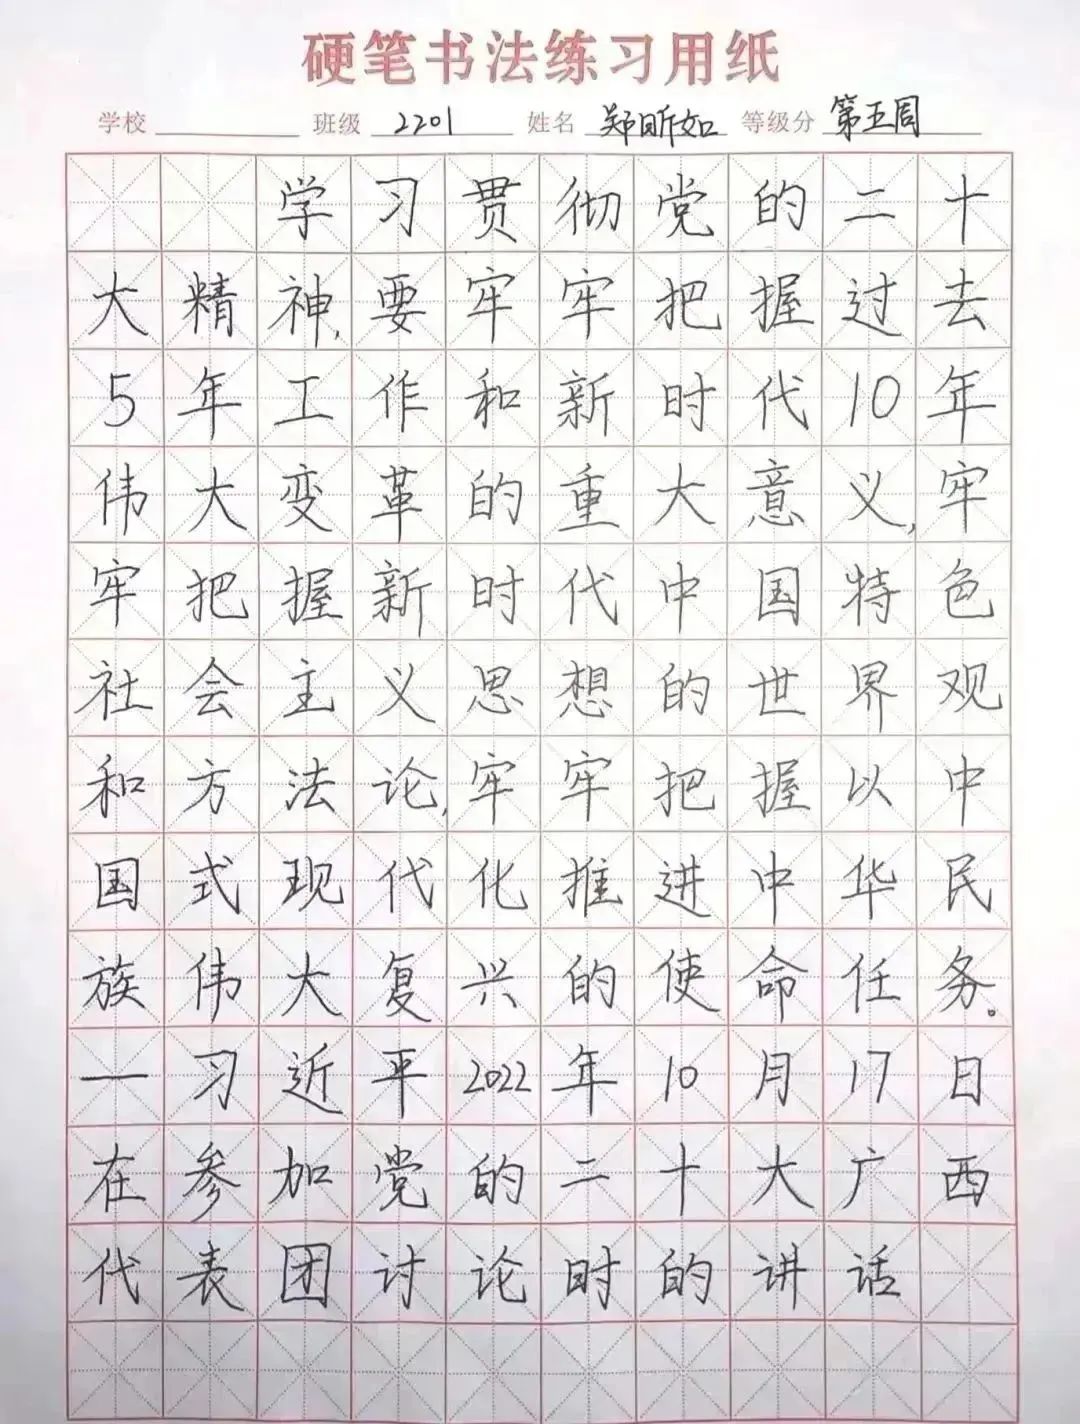 硬笔书法练习用纸
学校 班级 2201 姓名 郑昕如 等级分 第五周
学习贯彻党的二十
大精神,要牢牢把握过去
5年工作和新时代10年
伟大变革的重大意义,牢
牢把握新时代中国特色
社会主义思想的世界观
和方法论,牢牢把握以中
国式现代化推进中华民
族伟大复兴的使命任务。
—习近平2022年10月17日
在参加党的二十大广西
代表团讨论时的讲话